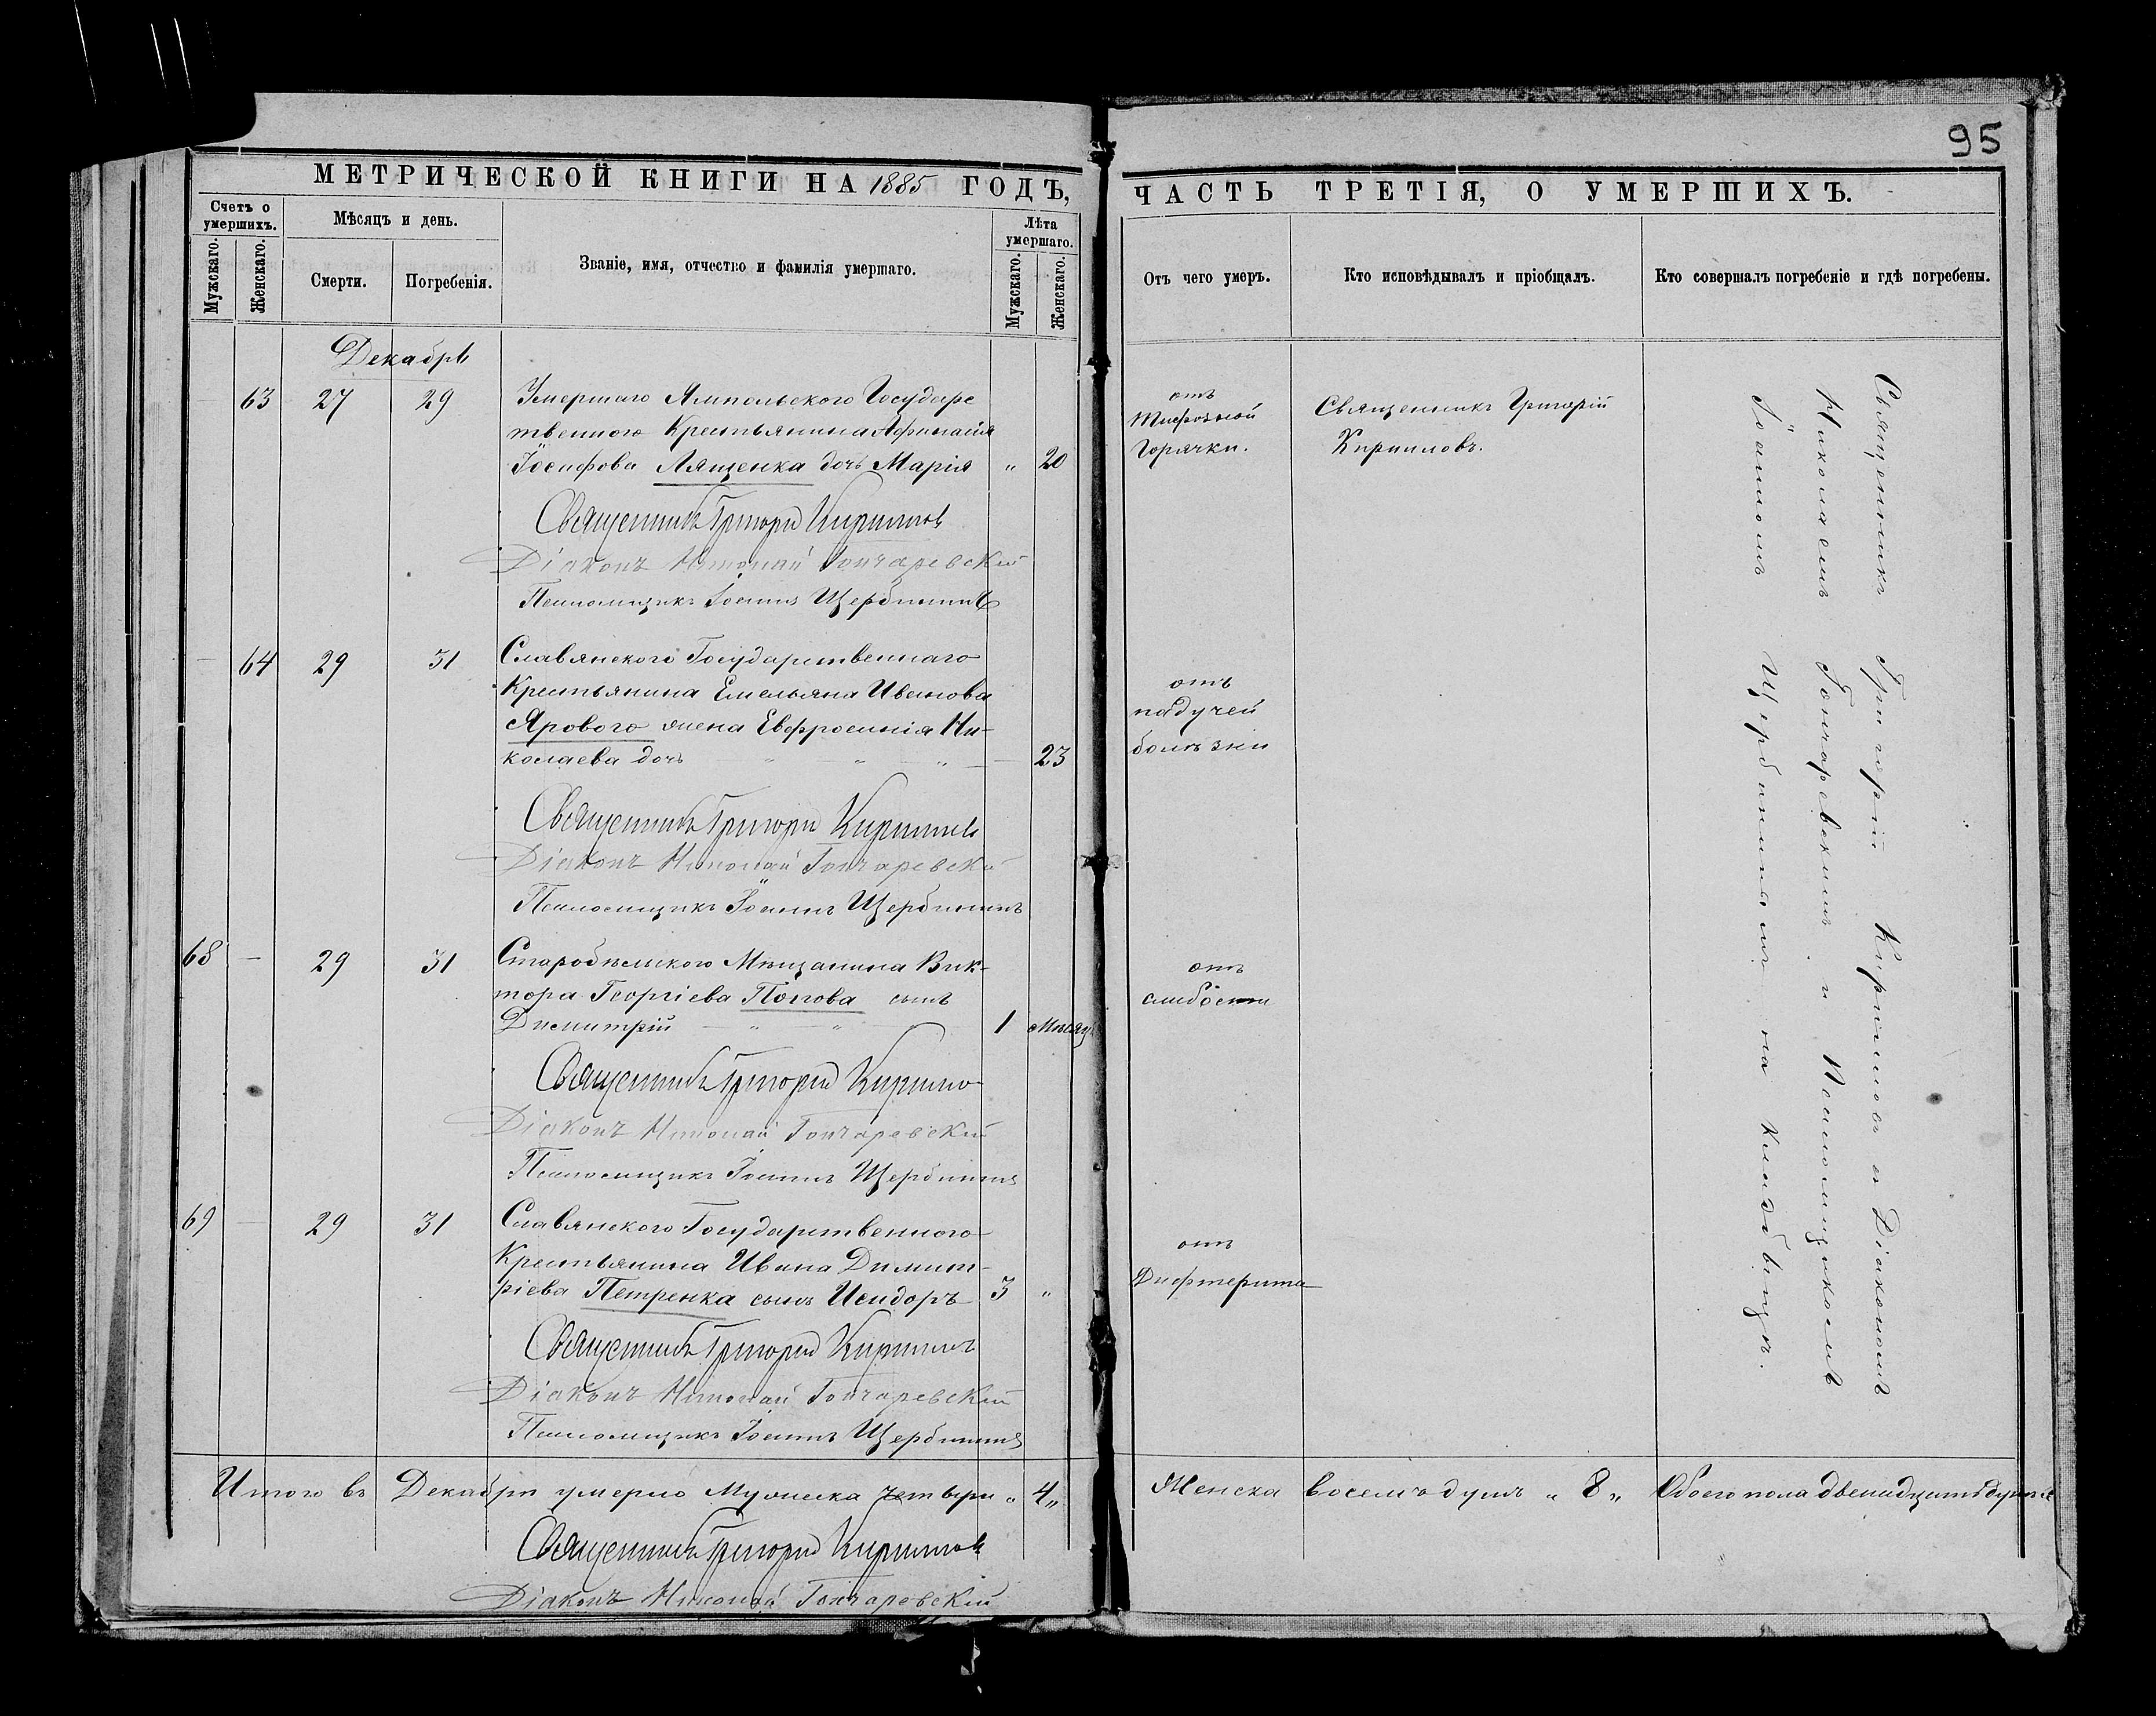 95
МЕТРИЧЕСКОЙ КНИГИ НА 1885 ГОДЪ,
Счетъ о умершихъ.
Мужскаго.
Женскаго.
Мѣсяцъ и день.
Смерти.
Погребенія.
Званіе, имя, отчество и фамилія умершаго.
Лѣта умершаго.
Мужскаго.
Женскаго.
Декабрь
63 27 29 Умершаго Ямпольского Государс
твенного Крестьянина Афанасія
Іосифова Лященка дочь Марія " 20
Священникъ Григорій Кирилловъ
Діаконъ Николай Гончаревскій
Псаломщикъ Іоаннъ Щербининъ
— 64 29 31 Славянского Государственнаго
Крестьянина Емельяна Иванова
Ярового жена Евфросинія Ни-
колаева дочь — " — " — " — 23
Священникъ Григорій Кирилловъ
Діаконъ Николай Гончаревскій
Псаломщикъ Іоаннъ Щербининъ
68 — 29 31 Старобѣльского Мѣщанина Вик-
тора Георгіева Попова сынъ
Димитрій — " — " 1 Мѣсяц
Священникъ Григорій Кирилло
Діаконъ Николай Гончаревскій
Псаломщикъ Іоаннъ Щербининъ
69 — 29 31 Славянского Государственного
Крестьянина Ивана Димит-
ріева Петренка сынъ Исидоръ 3 "
Священникъ Григорій Кирилловъ
Діаконъ Николай Гончаревскій
Псаломщикъ Іоаннъ Щербининъ
Итого въ Декабрѣ умерло Мужеска четыри " 4 "
Священникъ Григорій Кирилловъ
Діаконъ Николай Гончаревскій
ЧАСТЬ ТРЕТІЯ, О УМЕРШИХЪ.
Отъ чего умеръ.
Кто исповѣдывалъ и пріобщалъ.
Кто совершалъ погребеніе и гдѣ погребены.
отъ
Тифозной
Горячки.
Священникъ Григорій
Кирилловъ.
отъ
падучей
болѣзни
отъ
слабости
отъ
Дифтерита
Священникъ Григорій Кирилловъ съ Діакономъ
Николаемъ Гончаревскимъ и Псаломщикомъ
Іоанномъ Щербининымъ на кладбищѣ.
Женска восемъ душъ " 8 " Обоего пола двенадцать душъ